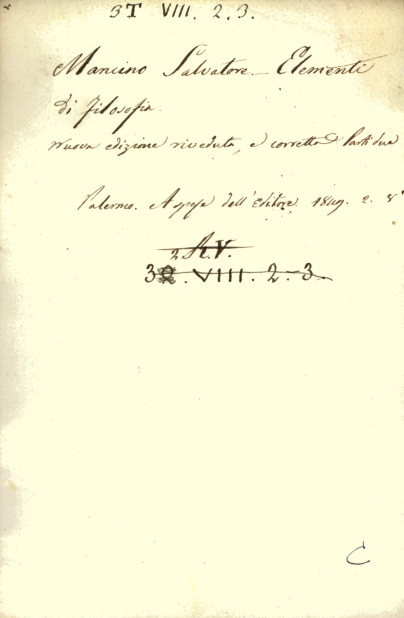 3T VIII. 2. 3.
Mancino Salvatore - Elementi
di filosofia.
Nuova edizione riveduta, e corretta Parti due
Palermo. A spese dell'Editore. 1849. 2. 8°
2 R.V.
VIII. 2.-3.
C